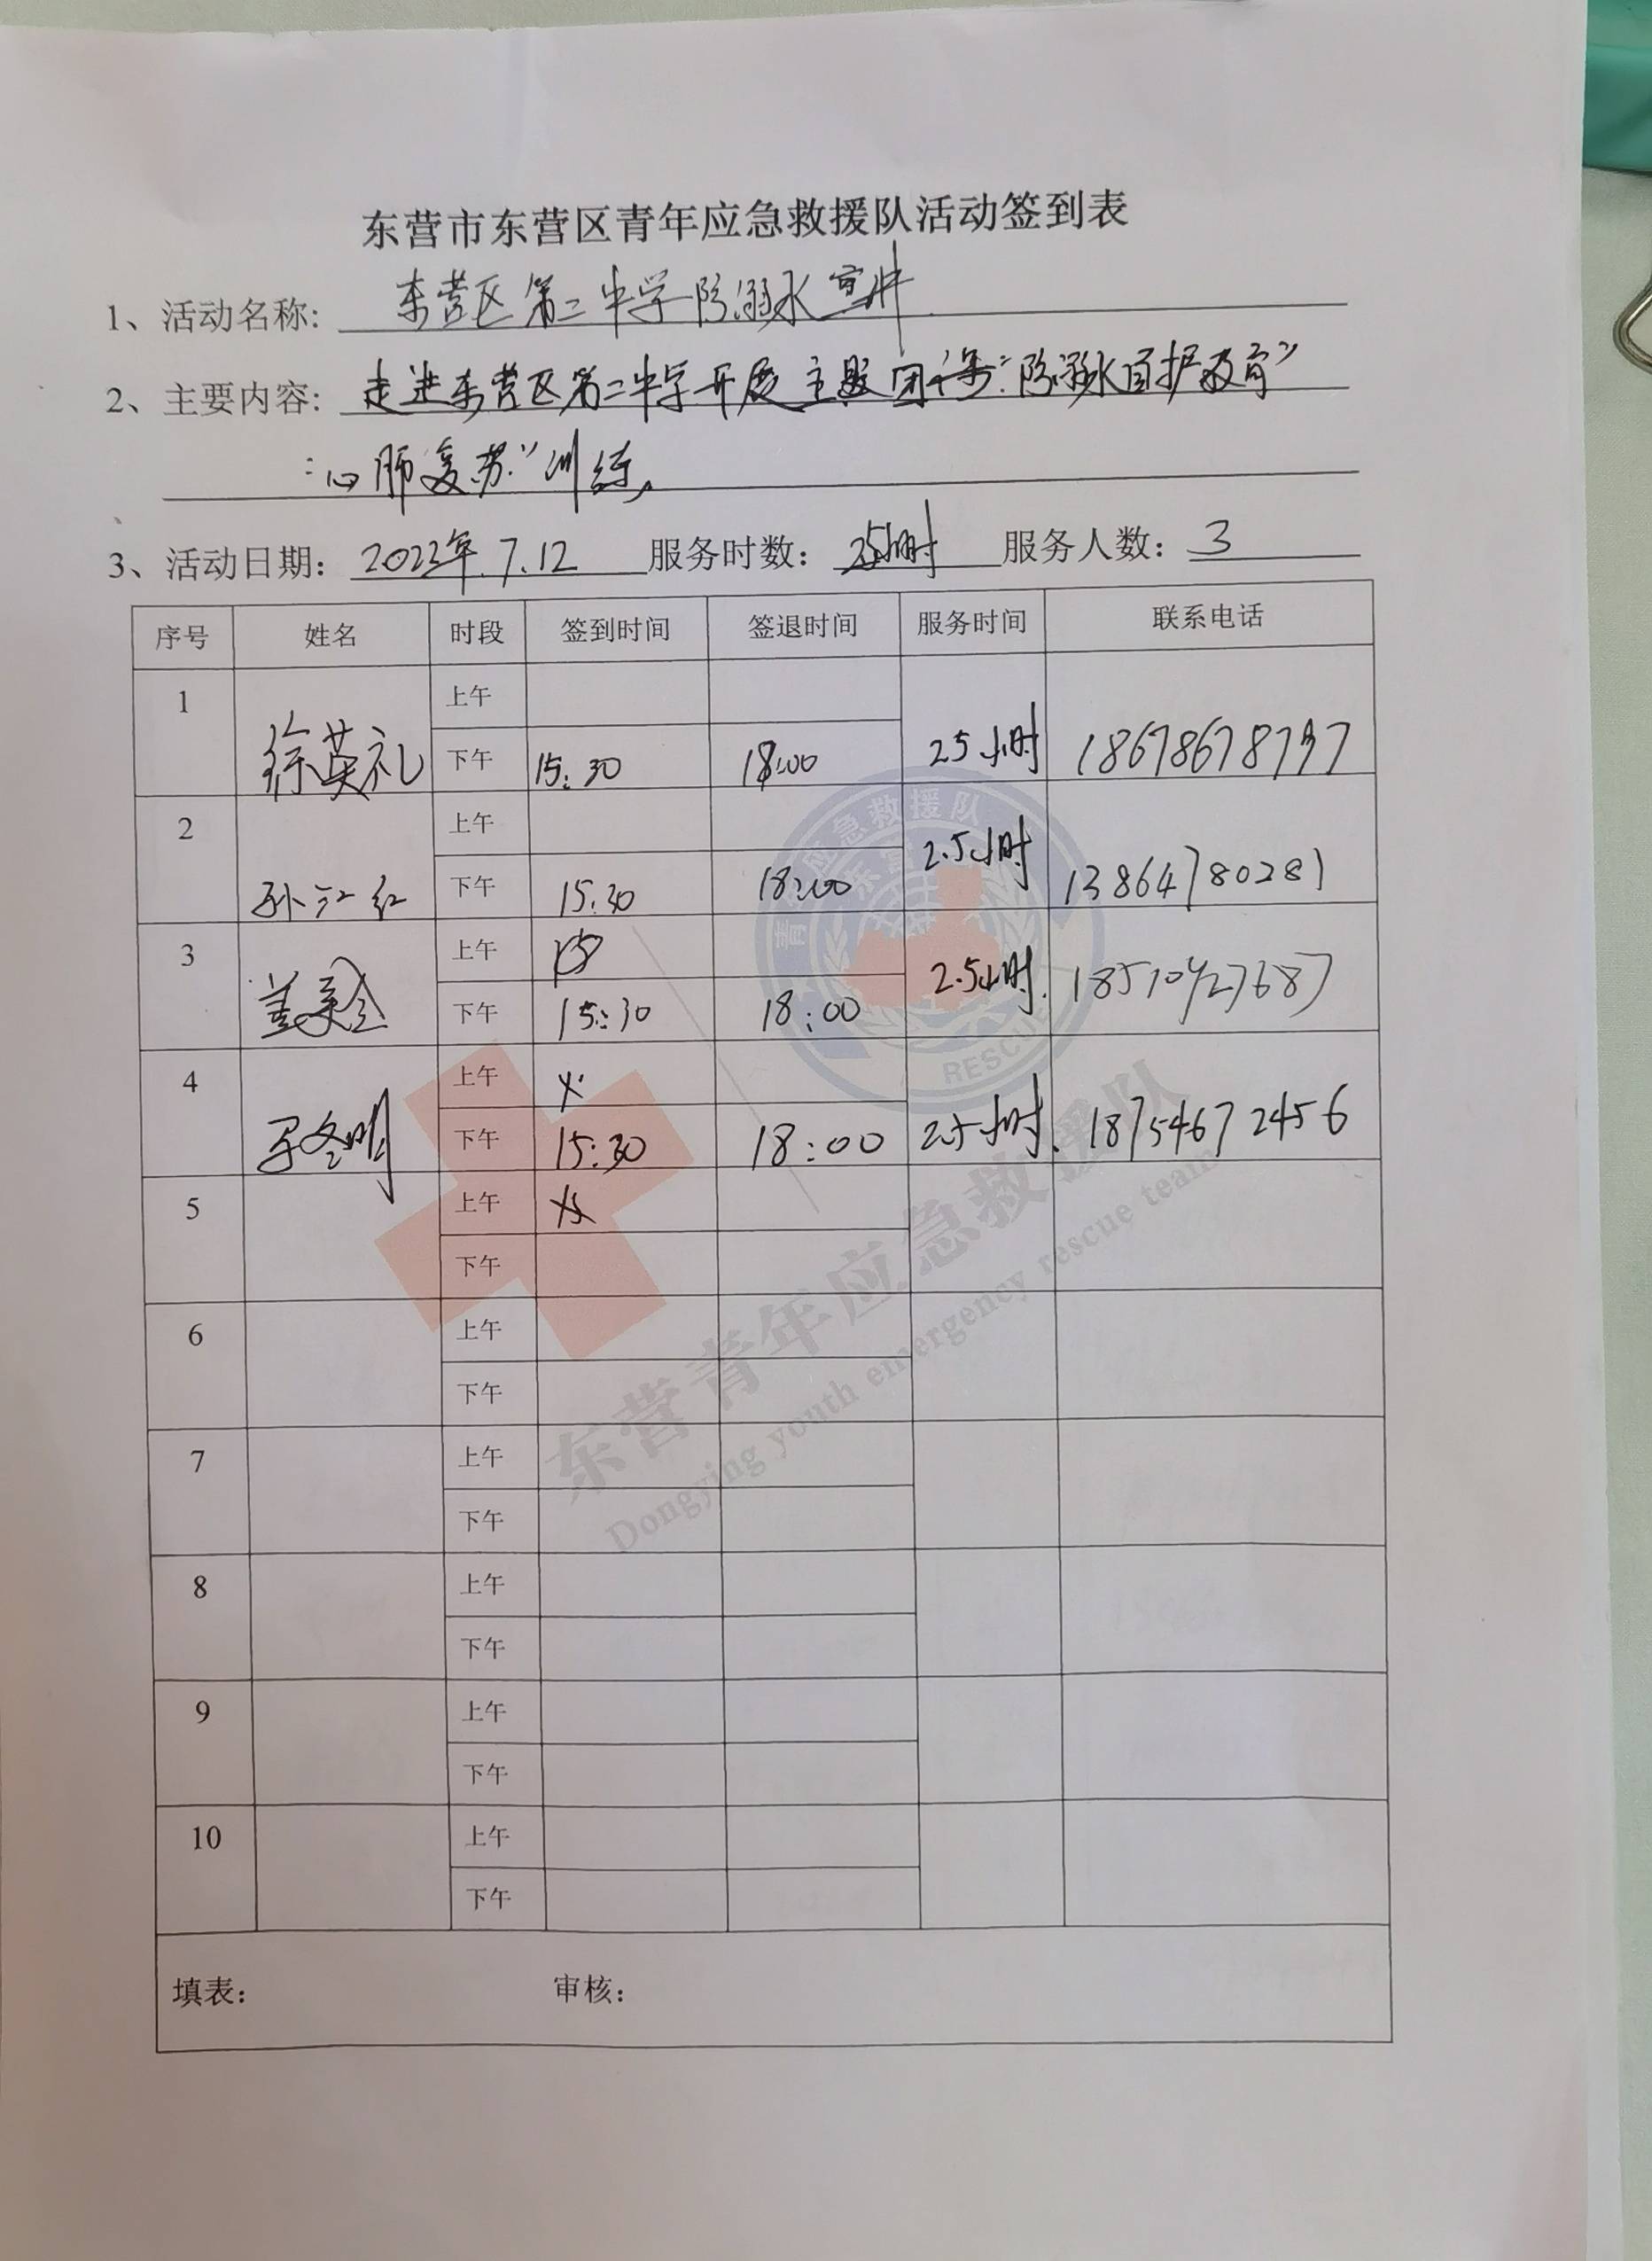 东营市东营区青年应急救援队活动签到表
1、活动名称: 东营区第二中学防溺水宣讲
2、主要内容: 走进东营区第二中学开展主题团课:“防溺水自护教育”
“心肺复苏”训练
3、活动日期: 2022年.7.12 服务时数: 2.5小时 服务人数: 3
序号 姓名 时段 签到时间 签退时间 服务时间 联系电话
1 徐英礼 上午
下午 15:30 18:00 2.5小时 18678678797
2 孙江红 上午
下午 15:30 18:00 2.5小时 13864780281
3 上午
下午 15:30 18:00 2.5小时 18510427687
4 上午
下午 15:30 18:00 2.5小时 18754672456
5 上午
下午
6 上午
下午
7 上午
下午
8 上午
下午
9 上午
下午
10 上午
下午
填表: 审核:
青年应急救援队
RESCUE
东营青年应急救援队
Dongying youth emergency rescue team